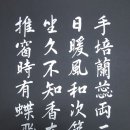 手培蘭蕊兩三
日暖風和次第
坐久不知香在
推窗時有蝶飛